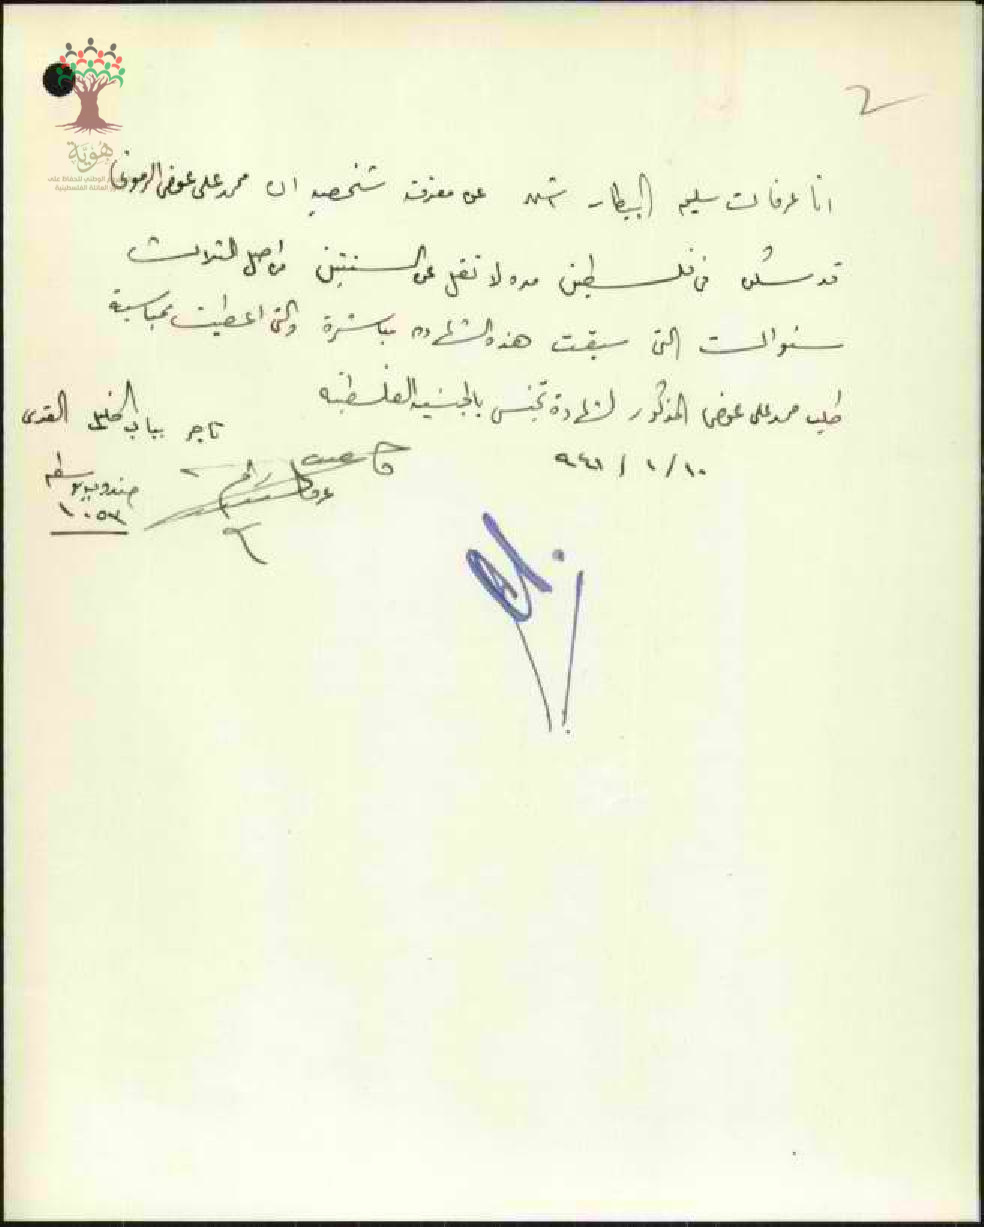 ٢
هوية
المشروع الوطني للحفاظ على
العائلة الفلسطينية
انا عرفات سليم البيطار اشهد عن معرفة شخصيه ان محمد علي عوض الرموني
قد سكن في فلسطين مده لا تقل عن السنتين من اصل الثلاث
سنوات التي سبقت هذه الشهاده مباشرة والتي اعطيت بمناسبة
طلب محمد علي عوض المذكور لشهادة تجنس بالجنسيه الفلسطينيه
١٠ / ١ / ٩٤١
تاجر بباب الخليل القدس
صندوق بوسطه
١٠٥٢
عرفات